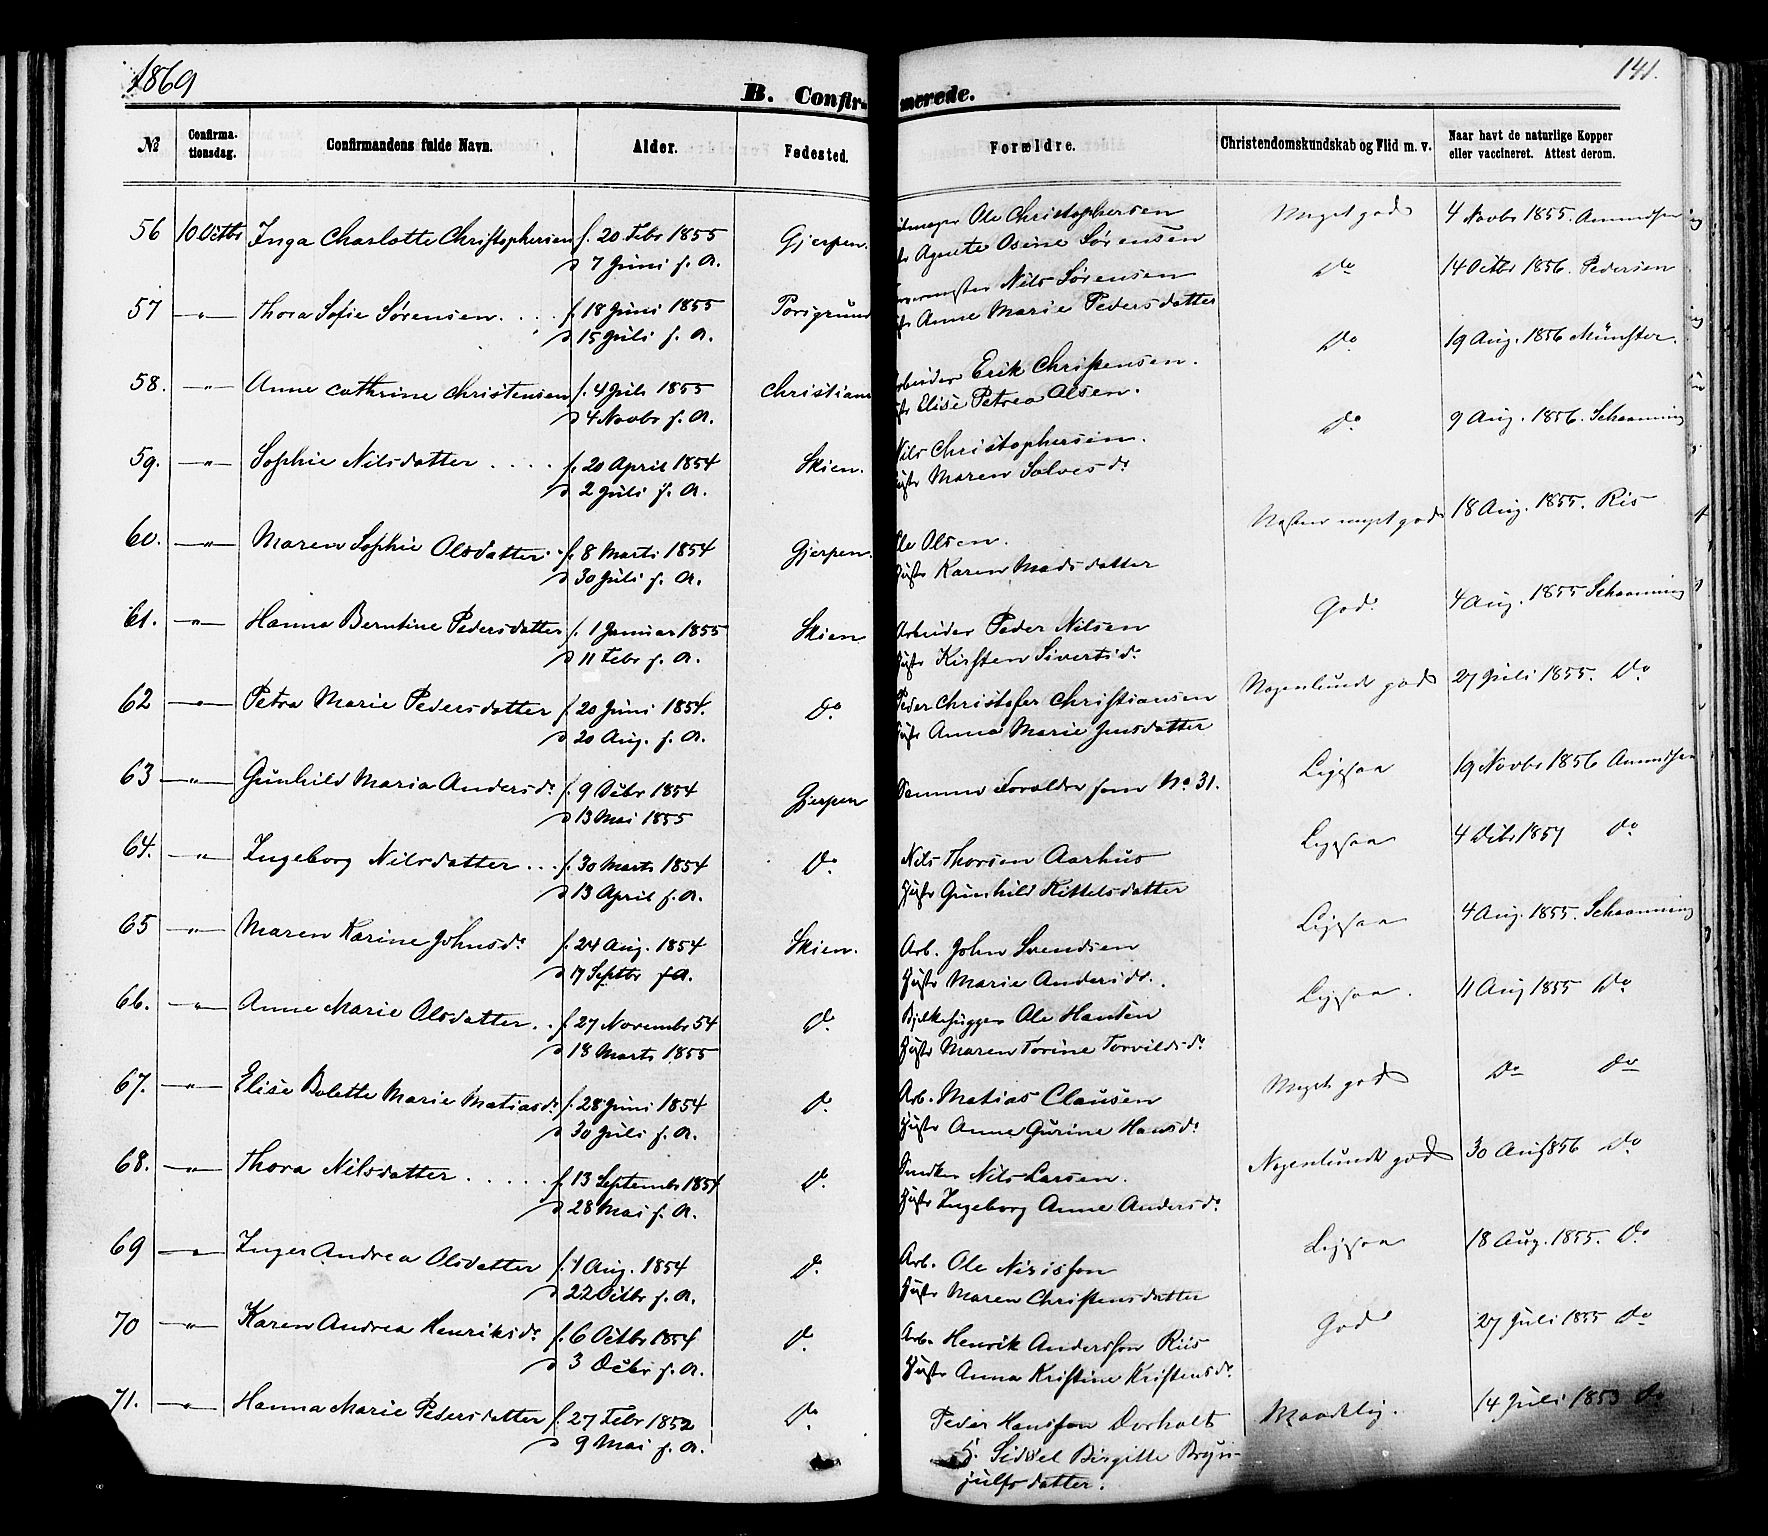 1869
141.
B. Confir- merede.
№ Confirma- tionsdag. Confirmandens fulde Navn. Alder. Fødested. Forældre. Christendomskundskab og Flid m. v. Naar havt de naturlige Kopper eller vaccineret. Attest derom.
56 10 Octbr Inga Charlotte Christophersen f. 20 Febr 1855 Gjerpen. Ole Christophersen Meget god 4 Novbr 1855. Amundsen
d 7 Juni s. A. Agnete Osine Sørensen
57 -"- Thora Sofie Sørensen. . . . f. 18 Juni 1855 Porsgrund Nils Sørensen Do 14 Octbr 1856. Pedersen
d 15 Juli s. A. Anne Marie Pedersdatter
58. -"- Anne Cathrine Christensen f. 4 Juli 1855 Christians Arbeider Erik Christensen. Do 19 Aug. 1856 Münster.
d 4 Novbr s. A. Elise Petrea Olsen.
59. -"- Sophie Nilsdatter . . . . f. 20 April 1854 Skien. Nils Christophersen. Do 9 Aug. 1856. Schaanning
d 2 Juli s. A. Hustr Maren Solves d.
60. -"- Maren Sophie Olsdatter. f. 8 Marts 1854 Gjerpen. Ole Olsen. Næsten meget god 18 Aug. 1855. Ris
d 30 Juli s. A. Hustr Karen Madsdatter
61. -"- Hanna Berntine Pedersdatter f. 1 Januar 1855 Skien Arbeider Peder Nilsen God. 4 Aug. 1855 Schaanning
d 11 Febr s. A. Hustr Kirsten Sivertsd.
62 -"- Petra Marie Pedersdatter f. 20 Juni 1854. Do Peder Christofer Christiansen Nogenlunde god 27 Juli 1855. Do
d 20 Aug. s. A. Hustr Anna Marie Jensdatter
63 -"- Gunhild Maria Andersd. f. 9 Decbr 1854 Gjerpen Samme Forældre som No 31. Ligesaa 19 Novbr 1856 Amundsen
d 13 Mai 1855
64. -"- Ingeborg Nilsdatter . . . f. 30 Marts 1854 Do. Nils Thorsen Aarhus Ligesaa 4 Octbr 1857 Do
d 13 April s. A. Hustr Gunhild Kittelsdatter
65 -"- Maren Karine Johnsd. f. 24 Aug. 1854 Skien. Arb. John Svendsen Ligesaa 4 Aug. 1855. Schaanning
d 17 Septbr s A. Hustr Marie Andersdr.
66. -"- Anne Marie Olsdatter . . f. 27 Novembr 54 Do. Bjelkehugger Ole Hansen Ligesaa. 11 Aug 1855 Do
d 18 Marts 1855 Hustr Maren Torine Torvildsd.
67. -"- Elise Bolette Marie Matiasd. f. 28 Juni 1854 Do. Arb. Matias Clausen Meget god Do Do
d 30 Juli s. A. Hustr Anne Gurine Hansd.
68. -"- Thora Nilsdatter . . . . . f. 13 Septembr 1854 Do. Snedker Nils Larsen. Nogenlunde god 30 Aug 1856 Do
d 28 Mai s. A. Hustr Ingeborg Anne Andersd.
69 -"- Inger Andrea Olsdatter f. 1 Aug. 1854 Do. Arb. Ole Ligesaa 18 Aug. 1855. Do
d 22 Octbr s. A. Hustr Maren Christensdatter
70 -"- Karen Andrea Henriksd. f. 6 Octbr 1854 Do. Arb. Henrik Anderssen Riis God 27 Juli 1855 Do
d 3 Decbr s. A. Hustr Anna Kristine Kristensd.
71. -"- Hanna Marie Pedersdatter f. 27 Febr 1852 Do. Peder Hanssen Dorholt Maadelig. 14 Juli 1853 Do
d 9 Mai s. A. H. Sidsel Birgitte Bryn-
julfsdatter.